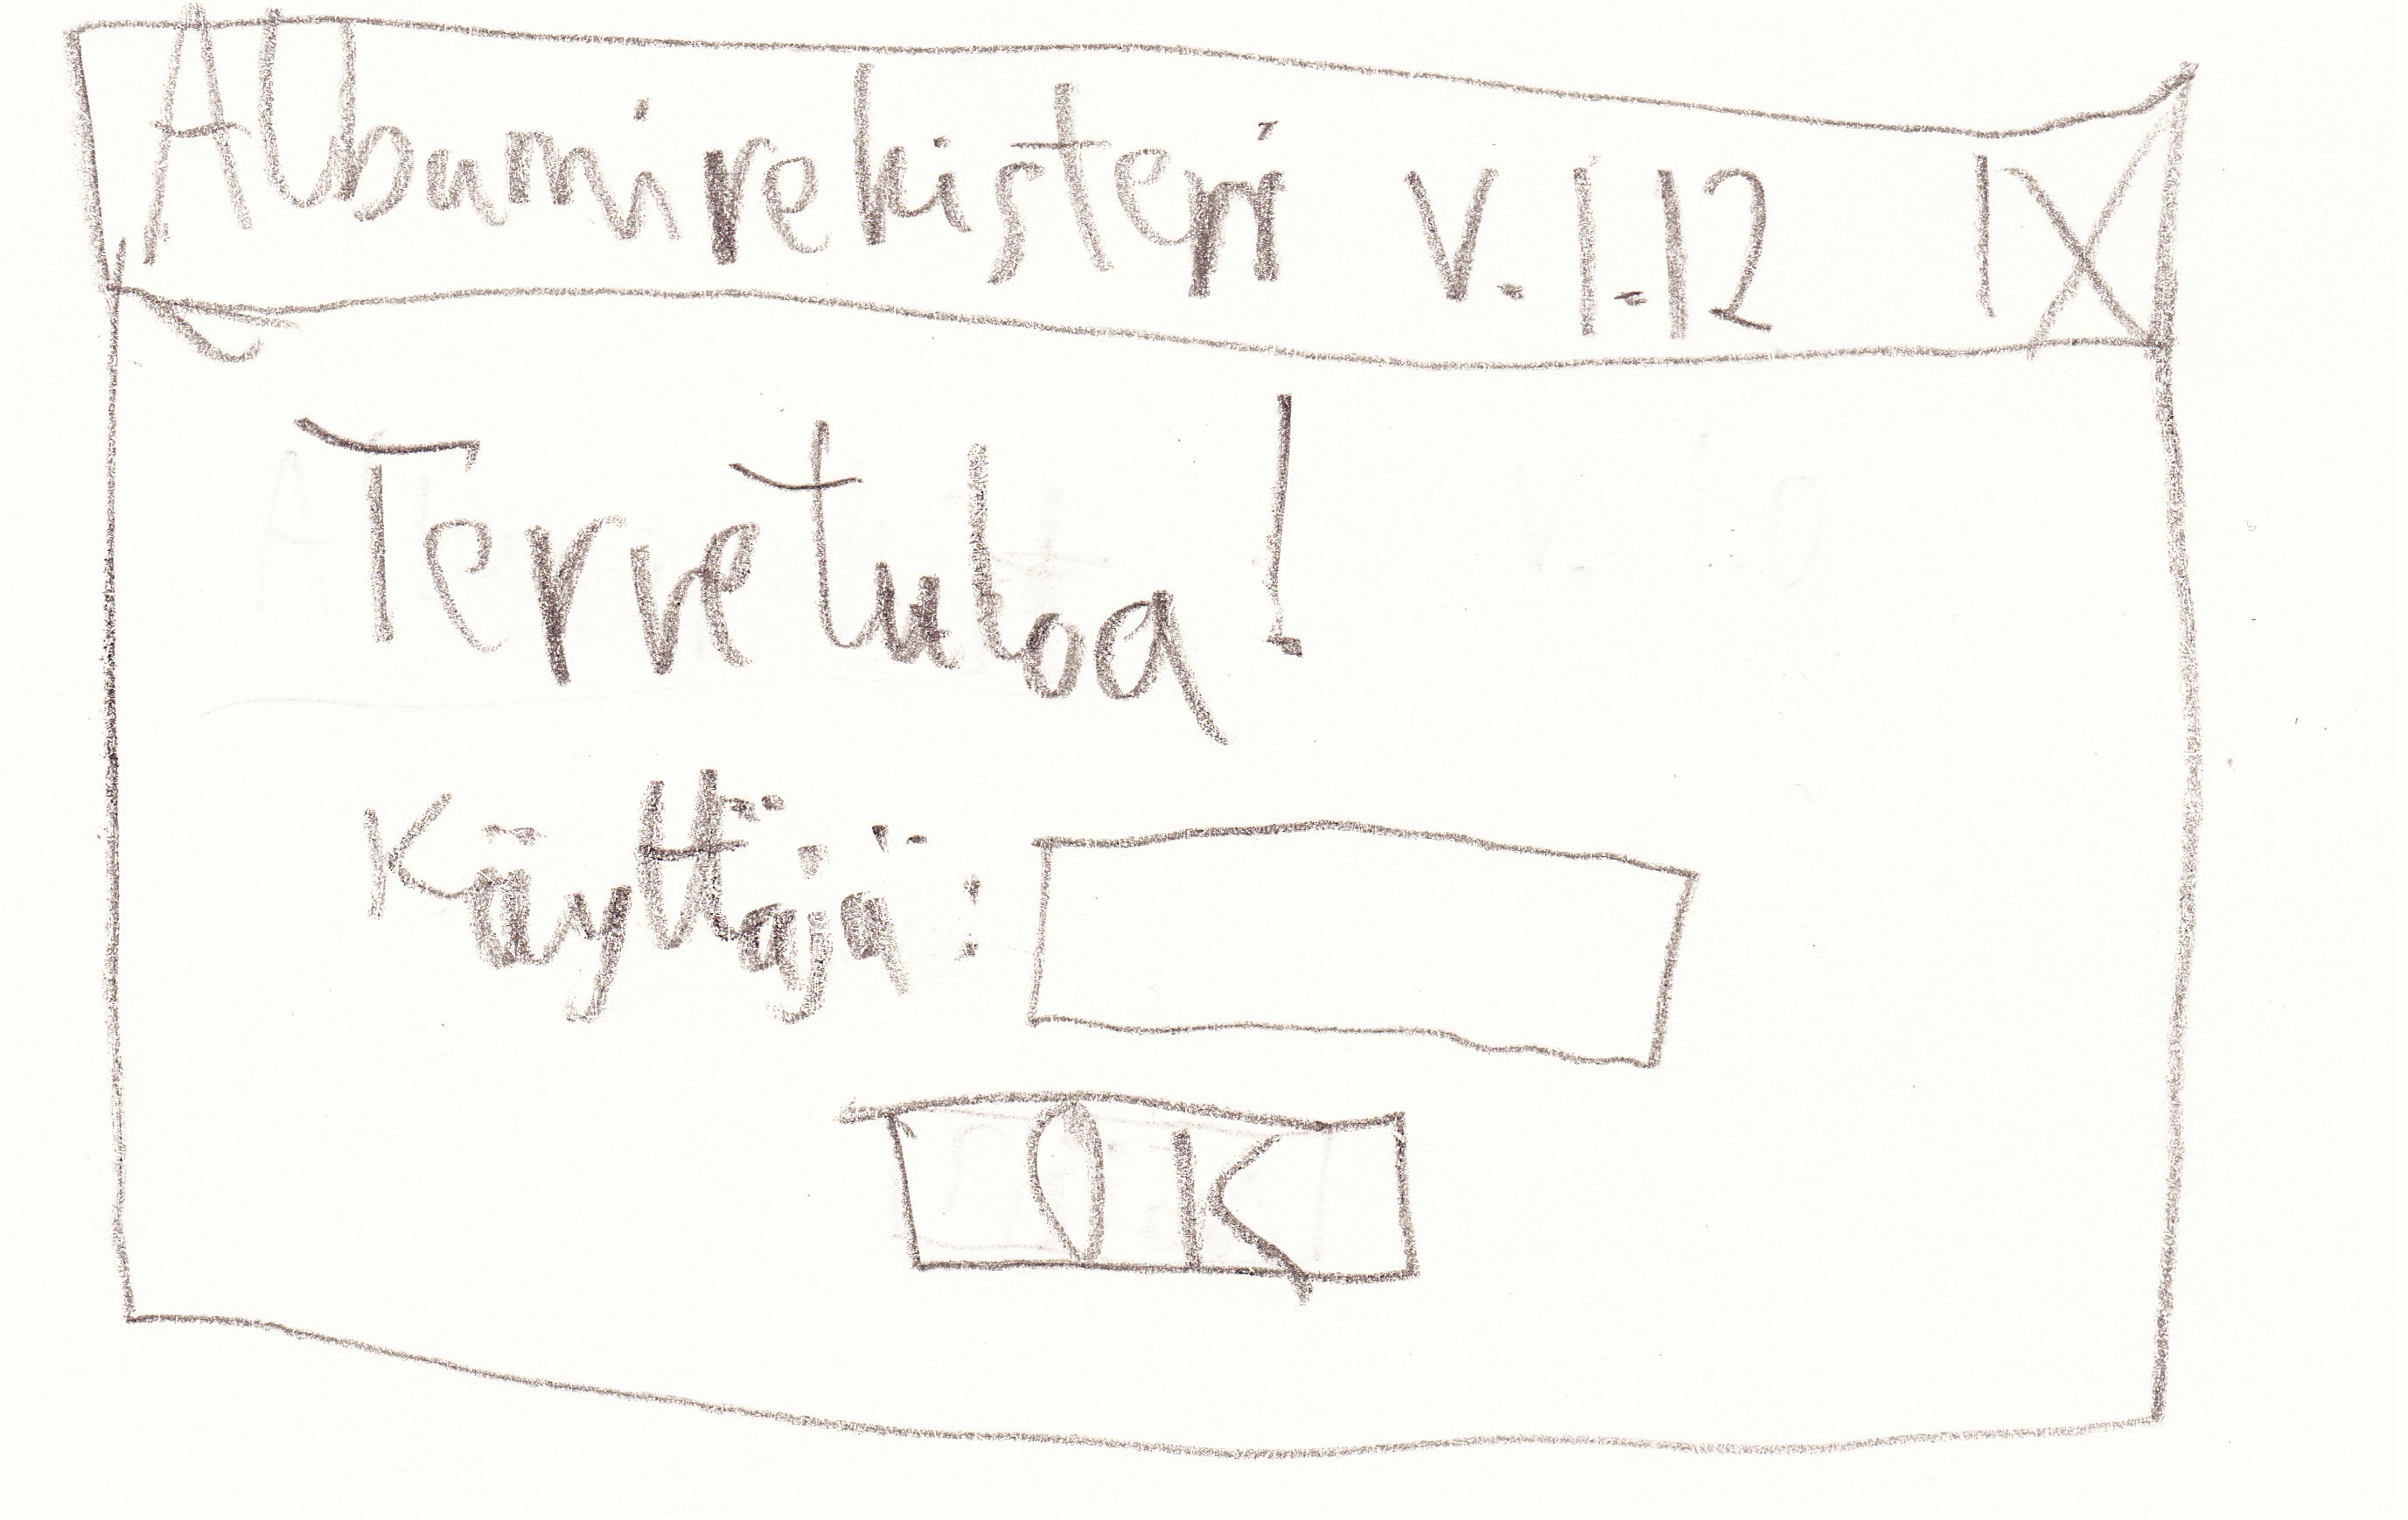 Albumirekisteri v. 1.12 X
Tervetuloa!
Käyttäjä:
OK